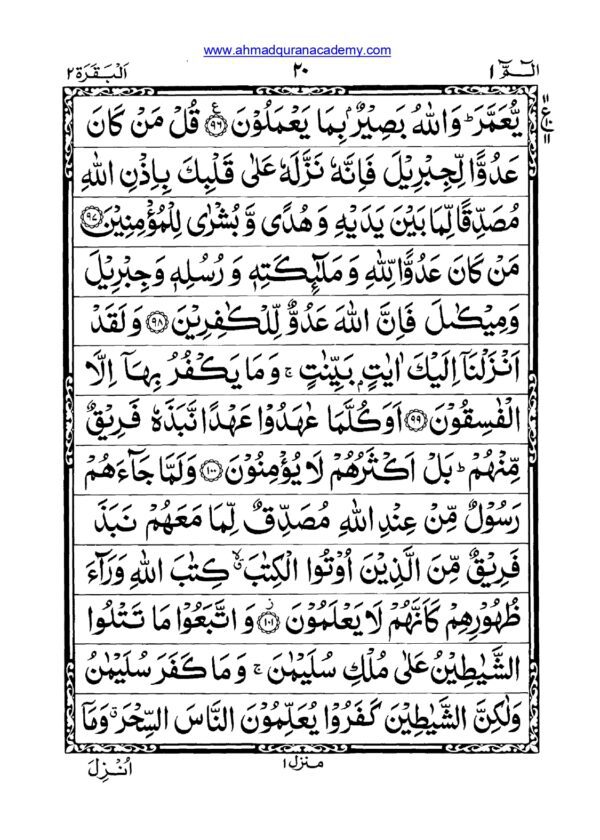 www.ahmadquranacademy.com
الٓمّٓ ١ ٢٠ اَلْبَقَرَة ٢
ع ١١ ١٠ ١١
يُّعَمَّرَ ؕ وَاللّٰهُ بَصِيْرٌۢ بِمَا يَعْمَلُوْنَ ﴿۹۶﴾ ع قُلْ مَنْ كَانَ
عَدُوًّا لِّجِبْرِيْلَ فَاِنَّهٗ نَزَّلَهٗ عَلٰى قَلْبِكَ بِاِذْنِ اللّٰهِ
مُصَدِّقًا لِّمَا بَيْنَ يَدَيْهِ وَهُدًى وَّبُشْرٰى لِلْمُؤْمِنِيْنَ ﴿۹۷﴾
مَنْ كَانَ عَدُوًّا لِّلّٰهِ وَمَلٰٓئِكَتِهٖ وَرُسُلِهٖ وَجِبْرِيْلَ
وَمِيْكٰىلَ فَاِنَّ اللّٰهَ عَدُوٌّ لِّلْكٰفِرِيْنَ ﴿۹۸﴾ وَلَقَدْ
اَنْزَلْنَاۤ اِلَيْكَ اٰيٰتٍۭ بَيِّنٰتٍ ۚ وَمَا يَكْفُرُ بِهَاۤ اِلَّا
الْفٰسِقُوْنَ ﴿۹۹﴾ اَوَكُلَّمَا عٰهَدُوْا عَهْدًا نَّبَذَهٗ فَرِيْقٌ
مِّنْهُمْ ؕ بَلْ اَكْثَرُهُمْ لَا يُؤْمِنُوْنَ ﴿۱۰۰﴾ وَلَمَّا جَآءَهُمْ
رَسُوْلٌ مِّنْ عِنْدِ اللّٰهِ مُصَدِّقٌ لِّمَا مَعَهُمْ نَبَذَ
فَرِيْقٌ مِّنَ الَّذِيْنَ اُوْتُوا الْكِتٰبَ ۙ كِتٰبَ اللّٰهِ وَرَآءَ
ظُهُوْرِهِمْ كَاَنَّهُمْ لَا يَعْلَمُوْنَ ﴿۱۰۱﴾ ز وَاتَّبَعُوْا مَا تَتْلُوا
الشَّيٰطِيْنُ عَلٰى مُلْكِ سُلَيْمٰنَ ۚ وَمَا كَفَرَ سُلَيْمٰنُ
وَلٰكِنَّ الشَّيٰطِيْنَ كَفَرُوْا يُعَلِّمُوْنَ النَّاسَ السِّحْرَ ۗ وَمَاۤ
منزل ١
اُنْزِلَ